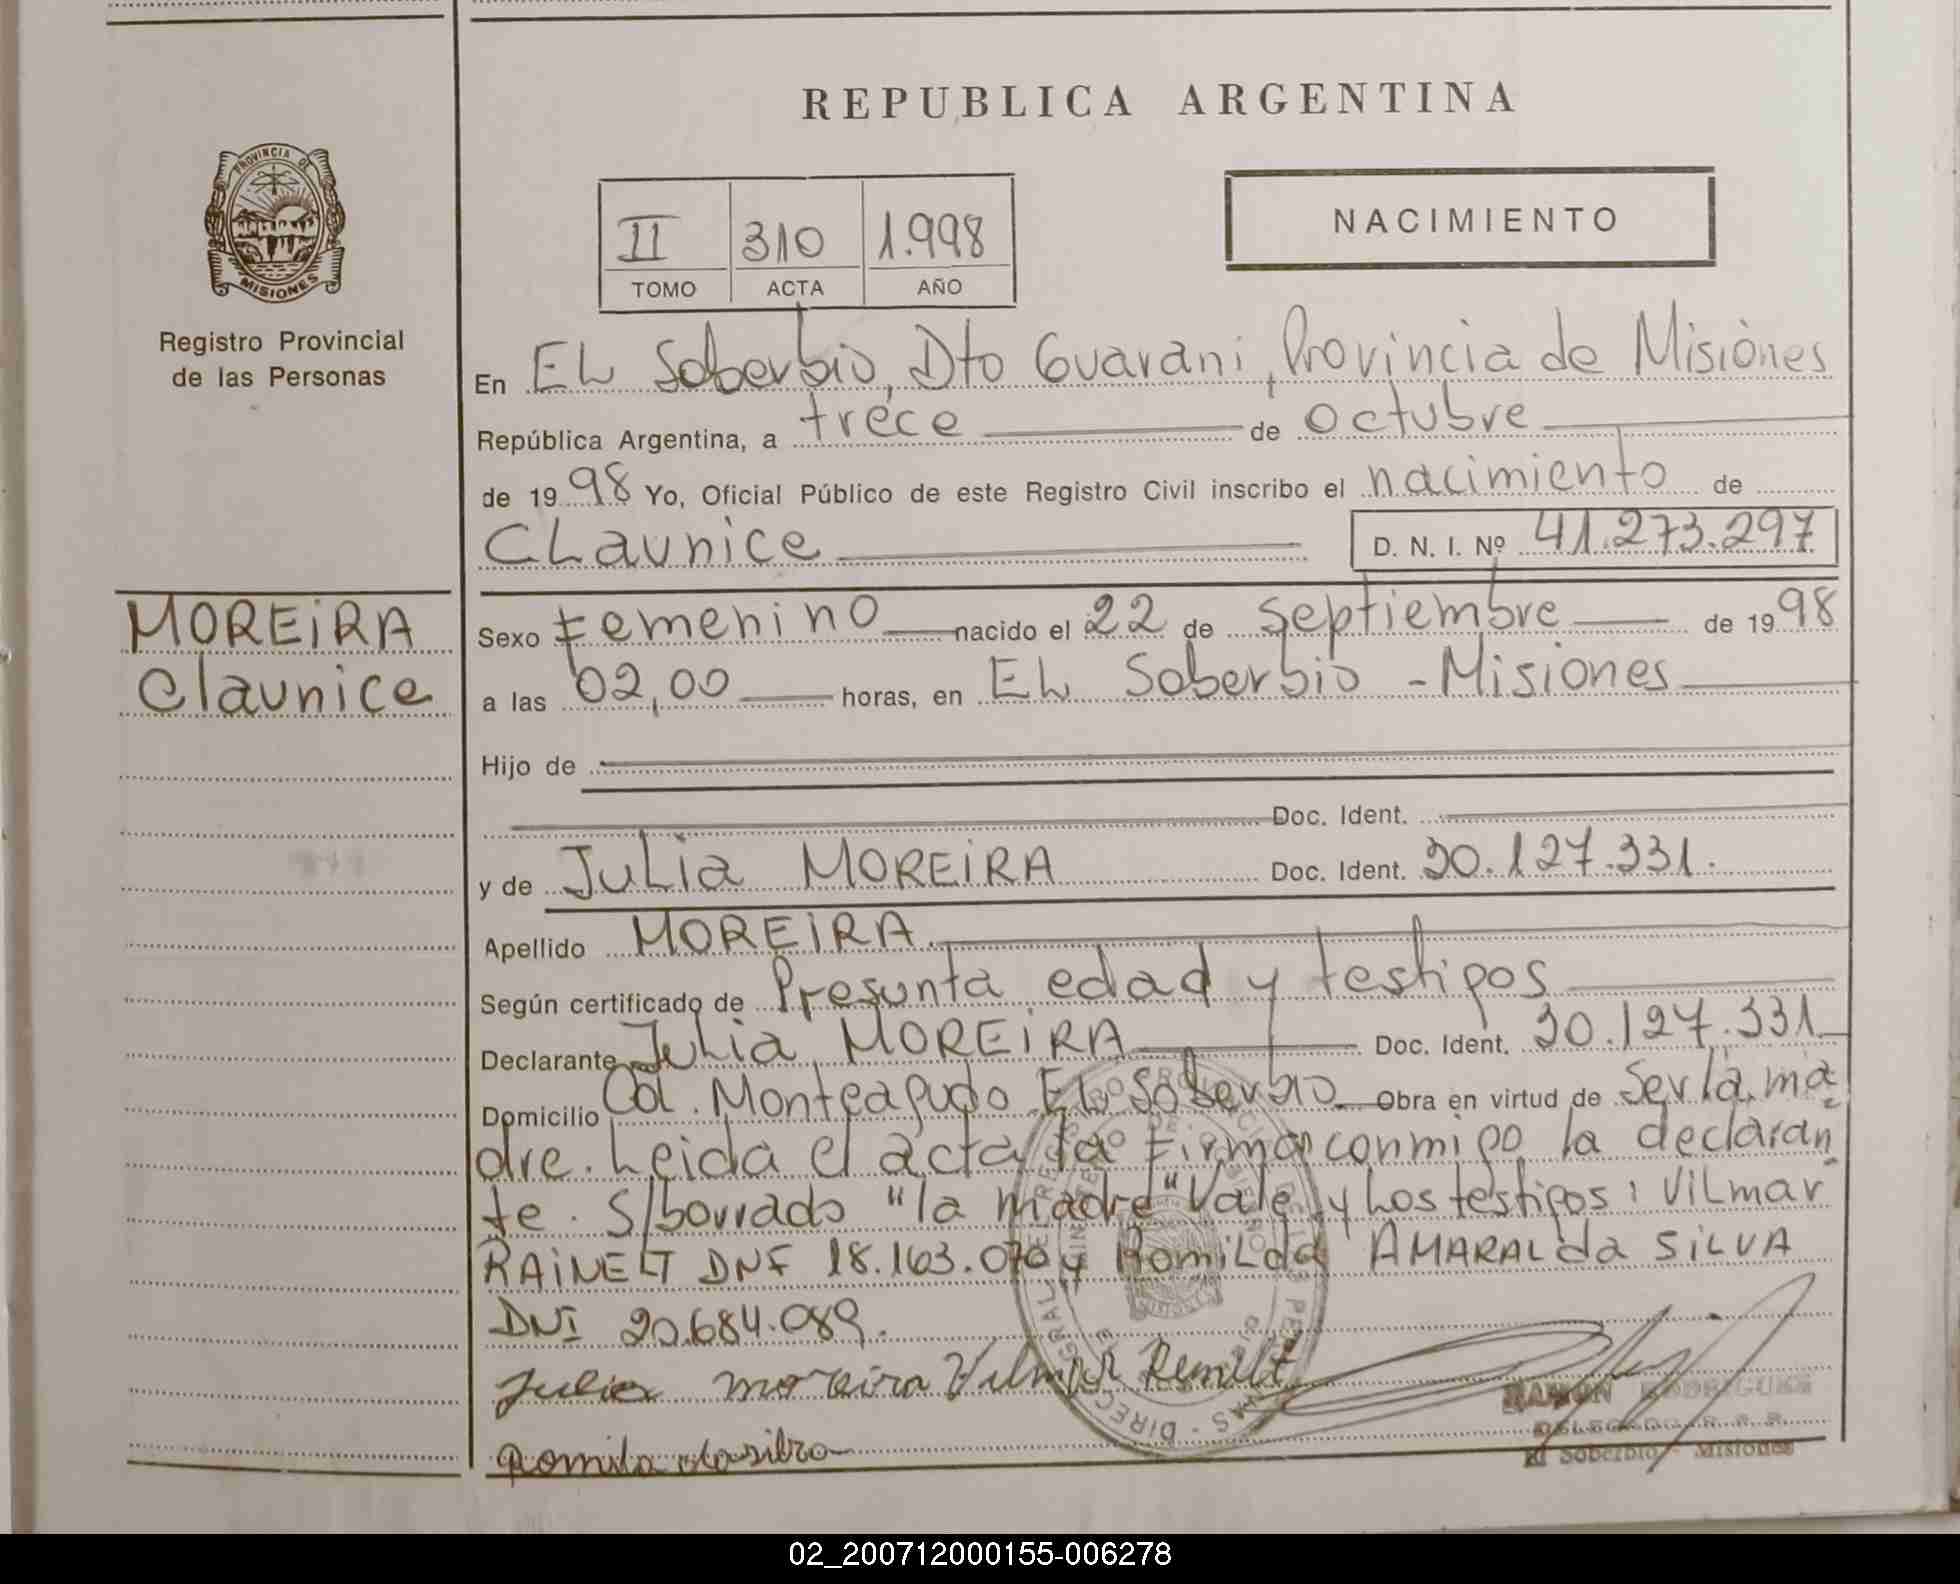 REPUBLICA ARGENTINA
PROVINCIA DE
MISIONES
Registro Provincial
de las Personas
II 310 1.998
TOMO ACTA AÑO
NACIMIENTO
En EL Soberbio, Dto Guarani, Provincia de Misiones
República Argentina, a trece de octubre
de 1998 Yo, Oficial Público de este Registro Civil inscribo el nacimiento de
CLaunice D. N. I. Nº 41.273.297
MOREiRA
Claunice
Sexo Femenino nacido el 22 de Septiembre de 1998
a las 02,00 horas, en EL Soberbio - Misiones
Hijo de
Doc. Ident.
y de JuLia MOREiRA Doc. Ident. 30.127.331.
Apellido MOREiRA.
Según certificado de Presunta edad y testigos
Declarante JuLia MOREiRA Doc. Ident. 30.127.331
Domicilio Col. Monteagudo EL Soberbio Obra en virtud de Ser la ma
dre. Leida el acta la Firman conmigo la declaran
te. S/borrado "la madre" Vale y Los testigos: ViLmar
RAiNELT DNI 18.163.070 y RomiLda AMARAL da SiLVA
DNI 20.684.089.
Julia moreira Vilmar Renelt
Romilda da silva
RAMON RODRIGUES
DELEGADO
El Soberbio - Misiones
02_200712000155-006278